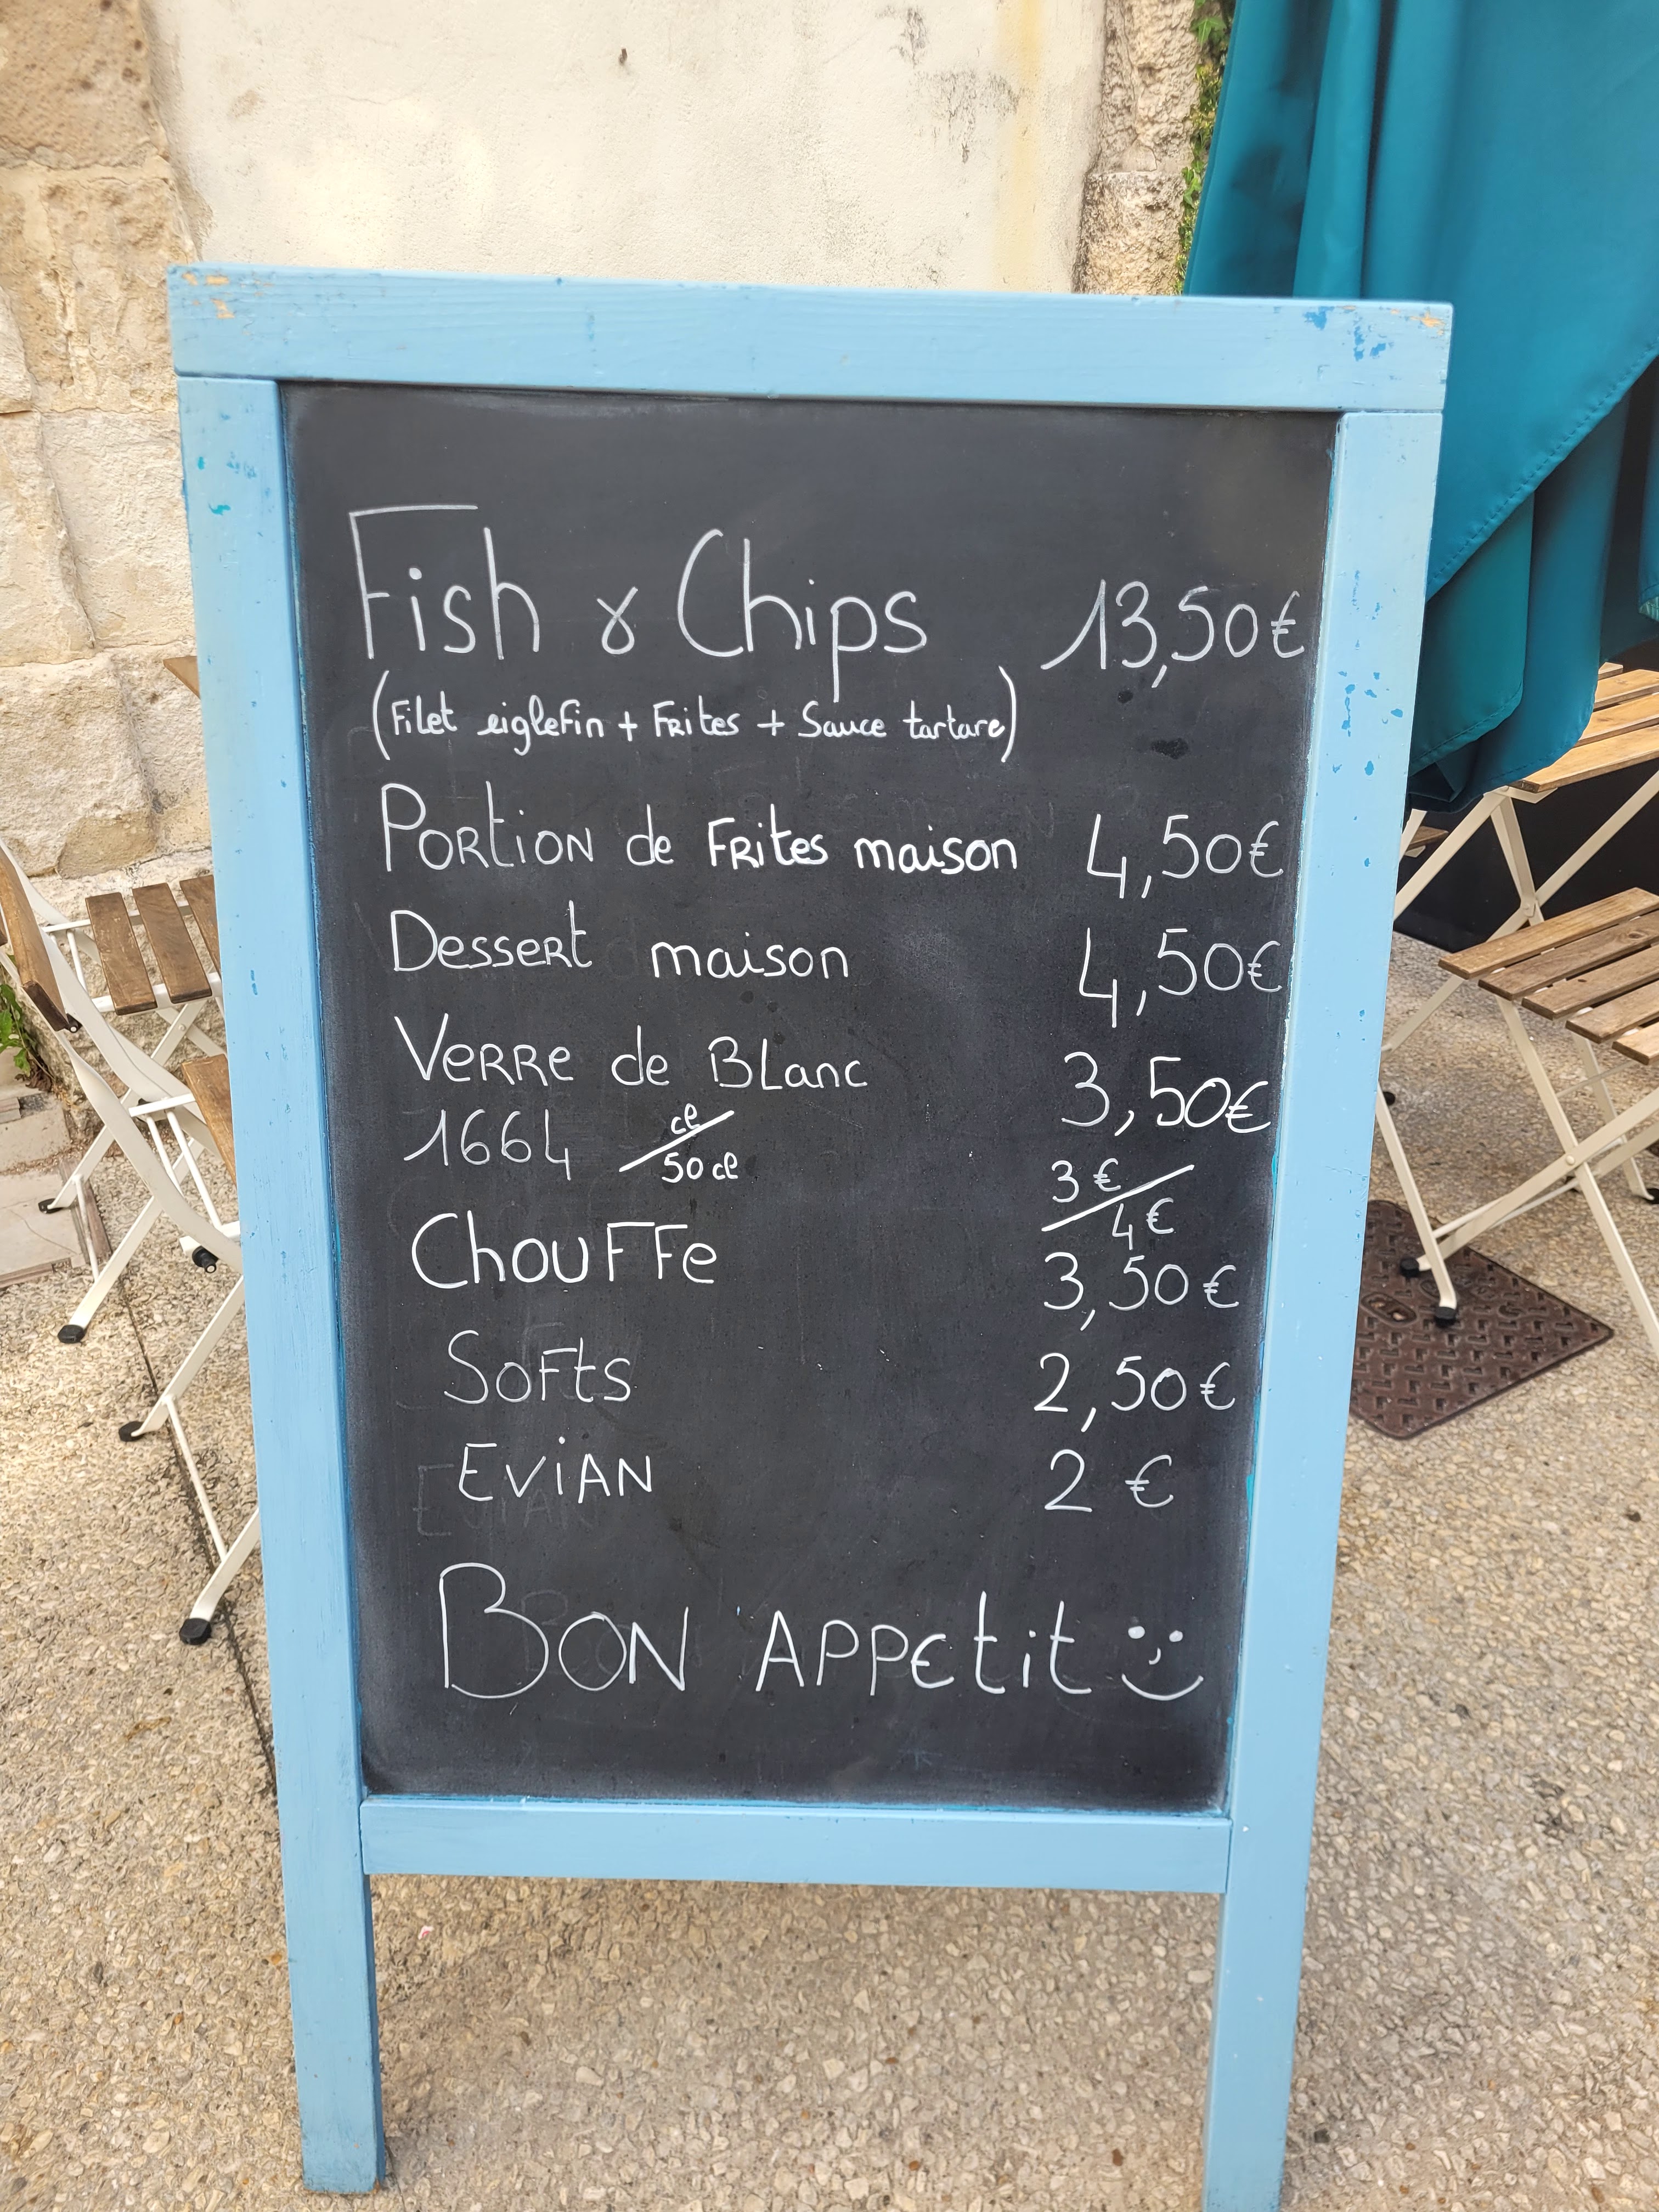 Fish & Chips 13,50€
(Filet eiglefin + Frites + Sauce tartare)
Portion de Frites maison 4,50€
Dessert maison 4,50€
Verre de Blanc 3,50€
1664 cl/50 cl 3 €/4 €
Chouffe 3,50€
Softs 2,50€
EviAN 2 €
BON APPetit